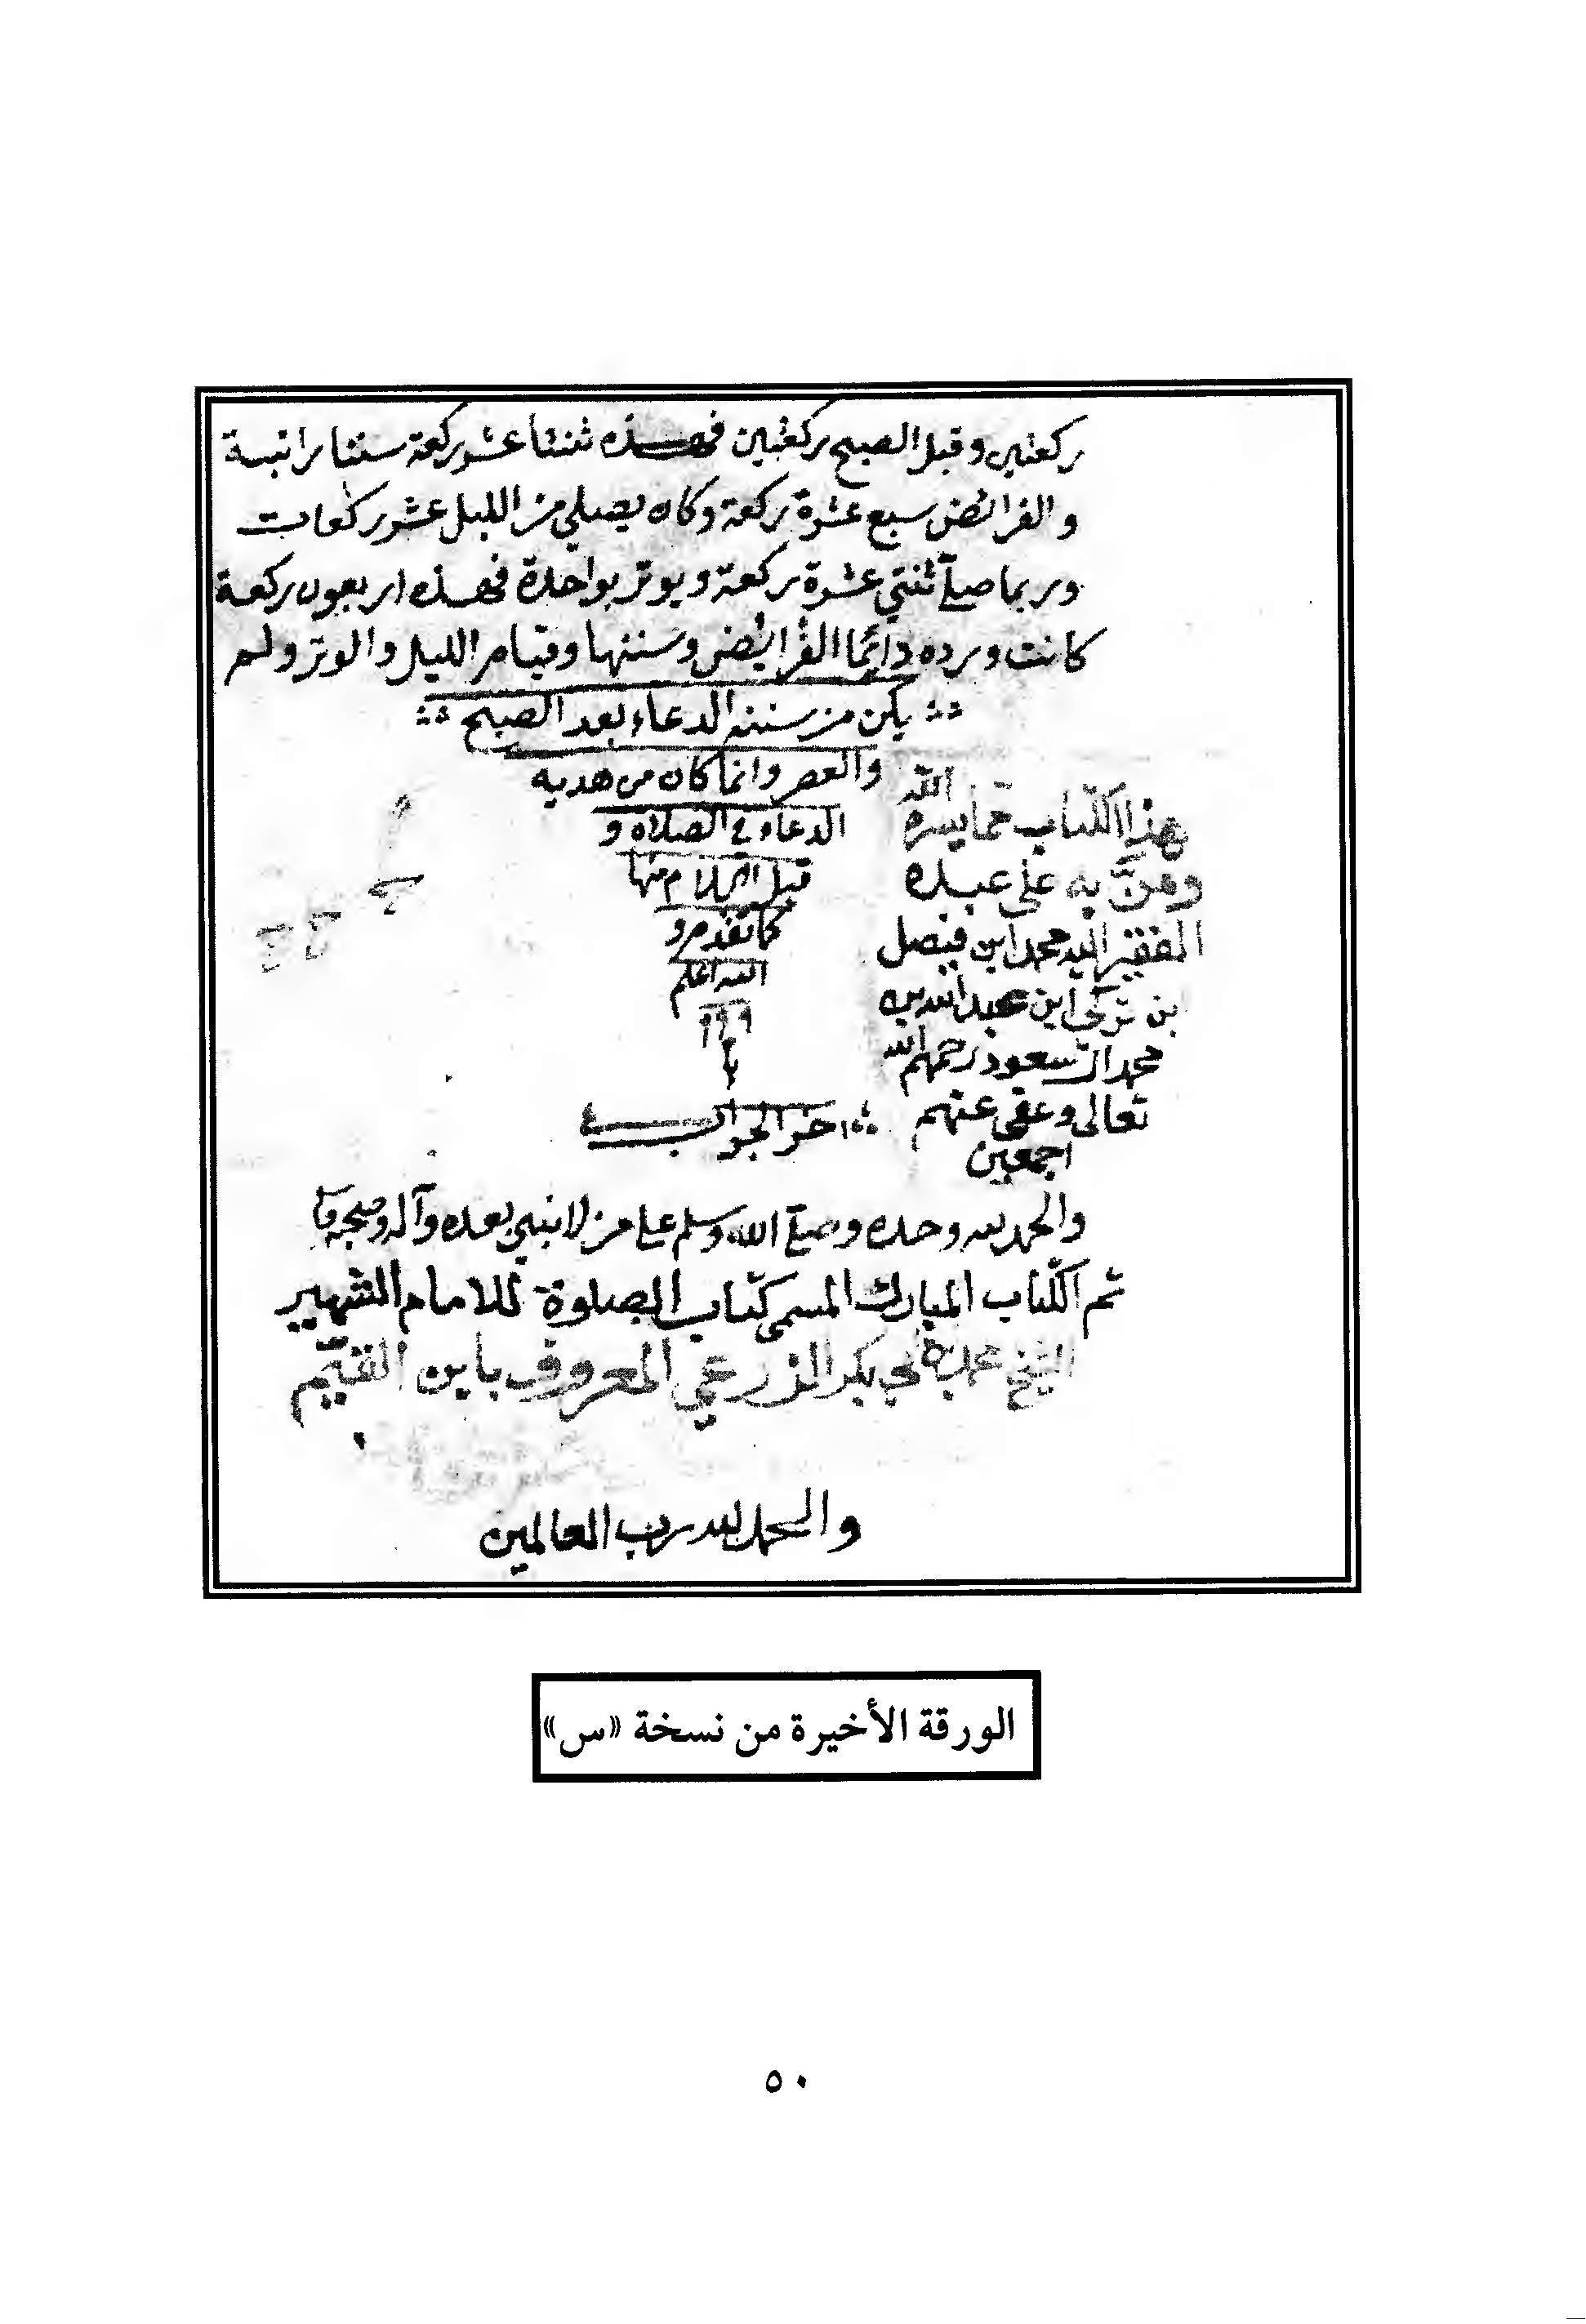 ركعتين وقبل الصبح ركعتين فهذه ثنتا عشر ركعة سننا راتبة
والفرائض سبع عشرة ركعة وكان يصلي من الليل عشر ركعات
وربما صلى ثنتي عشرة ركعة ويوتر بواحدة فهذه اربعون ركعة
كانت ورده دائما الفرائض وسننها وقيام الليل والوتر ولم
يكن من سننه الدعاء بعد الصبح
والعصر وانما كان من هديه
الدعاء في الصلاة و
قبل السلام منها
كما تقدم و
الله اعلم
آخر الجواب
هذا الكتاب مما يسره الله
ومنَّ به على عبده
الفقير اليه محمد ابن فيصل
بن تركي ابن عبد الله بن
محمد ال سعود رحمهم الله
تعالى وعفى عنهم
اجمعين
والحمد لله وحده وصلى الله وسلم على من لا نبي بعده وآله وصحبه
تم الكتاب المبارك المسمى كتاب الصلوة للامام الشهير
الشيخ محمد بن ابي بكر الزرعي المعروف بابن القيّم
والحمد لله رب العالمين
الورقة الأخيرة من نسخة «س»
٥٠